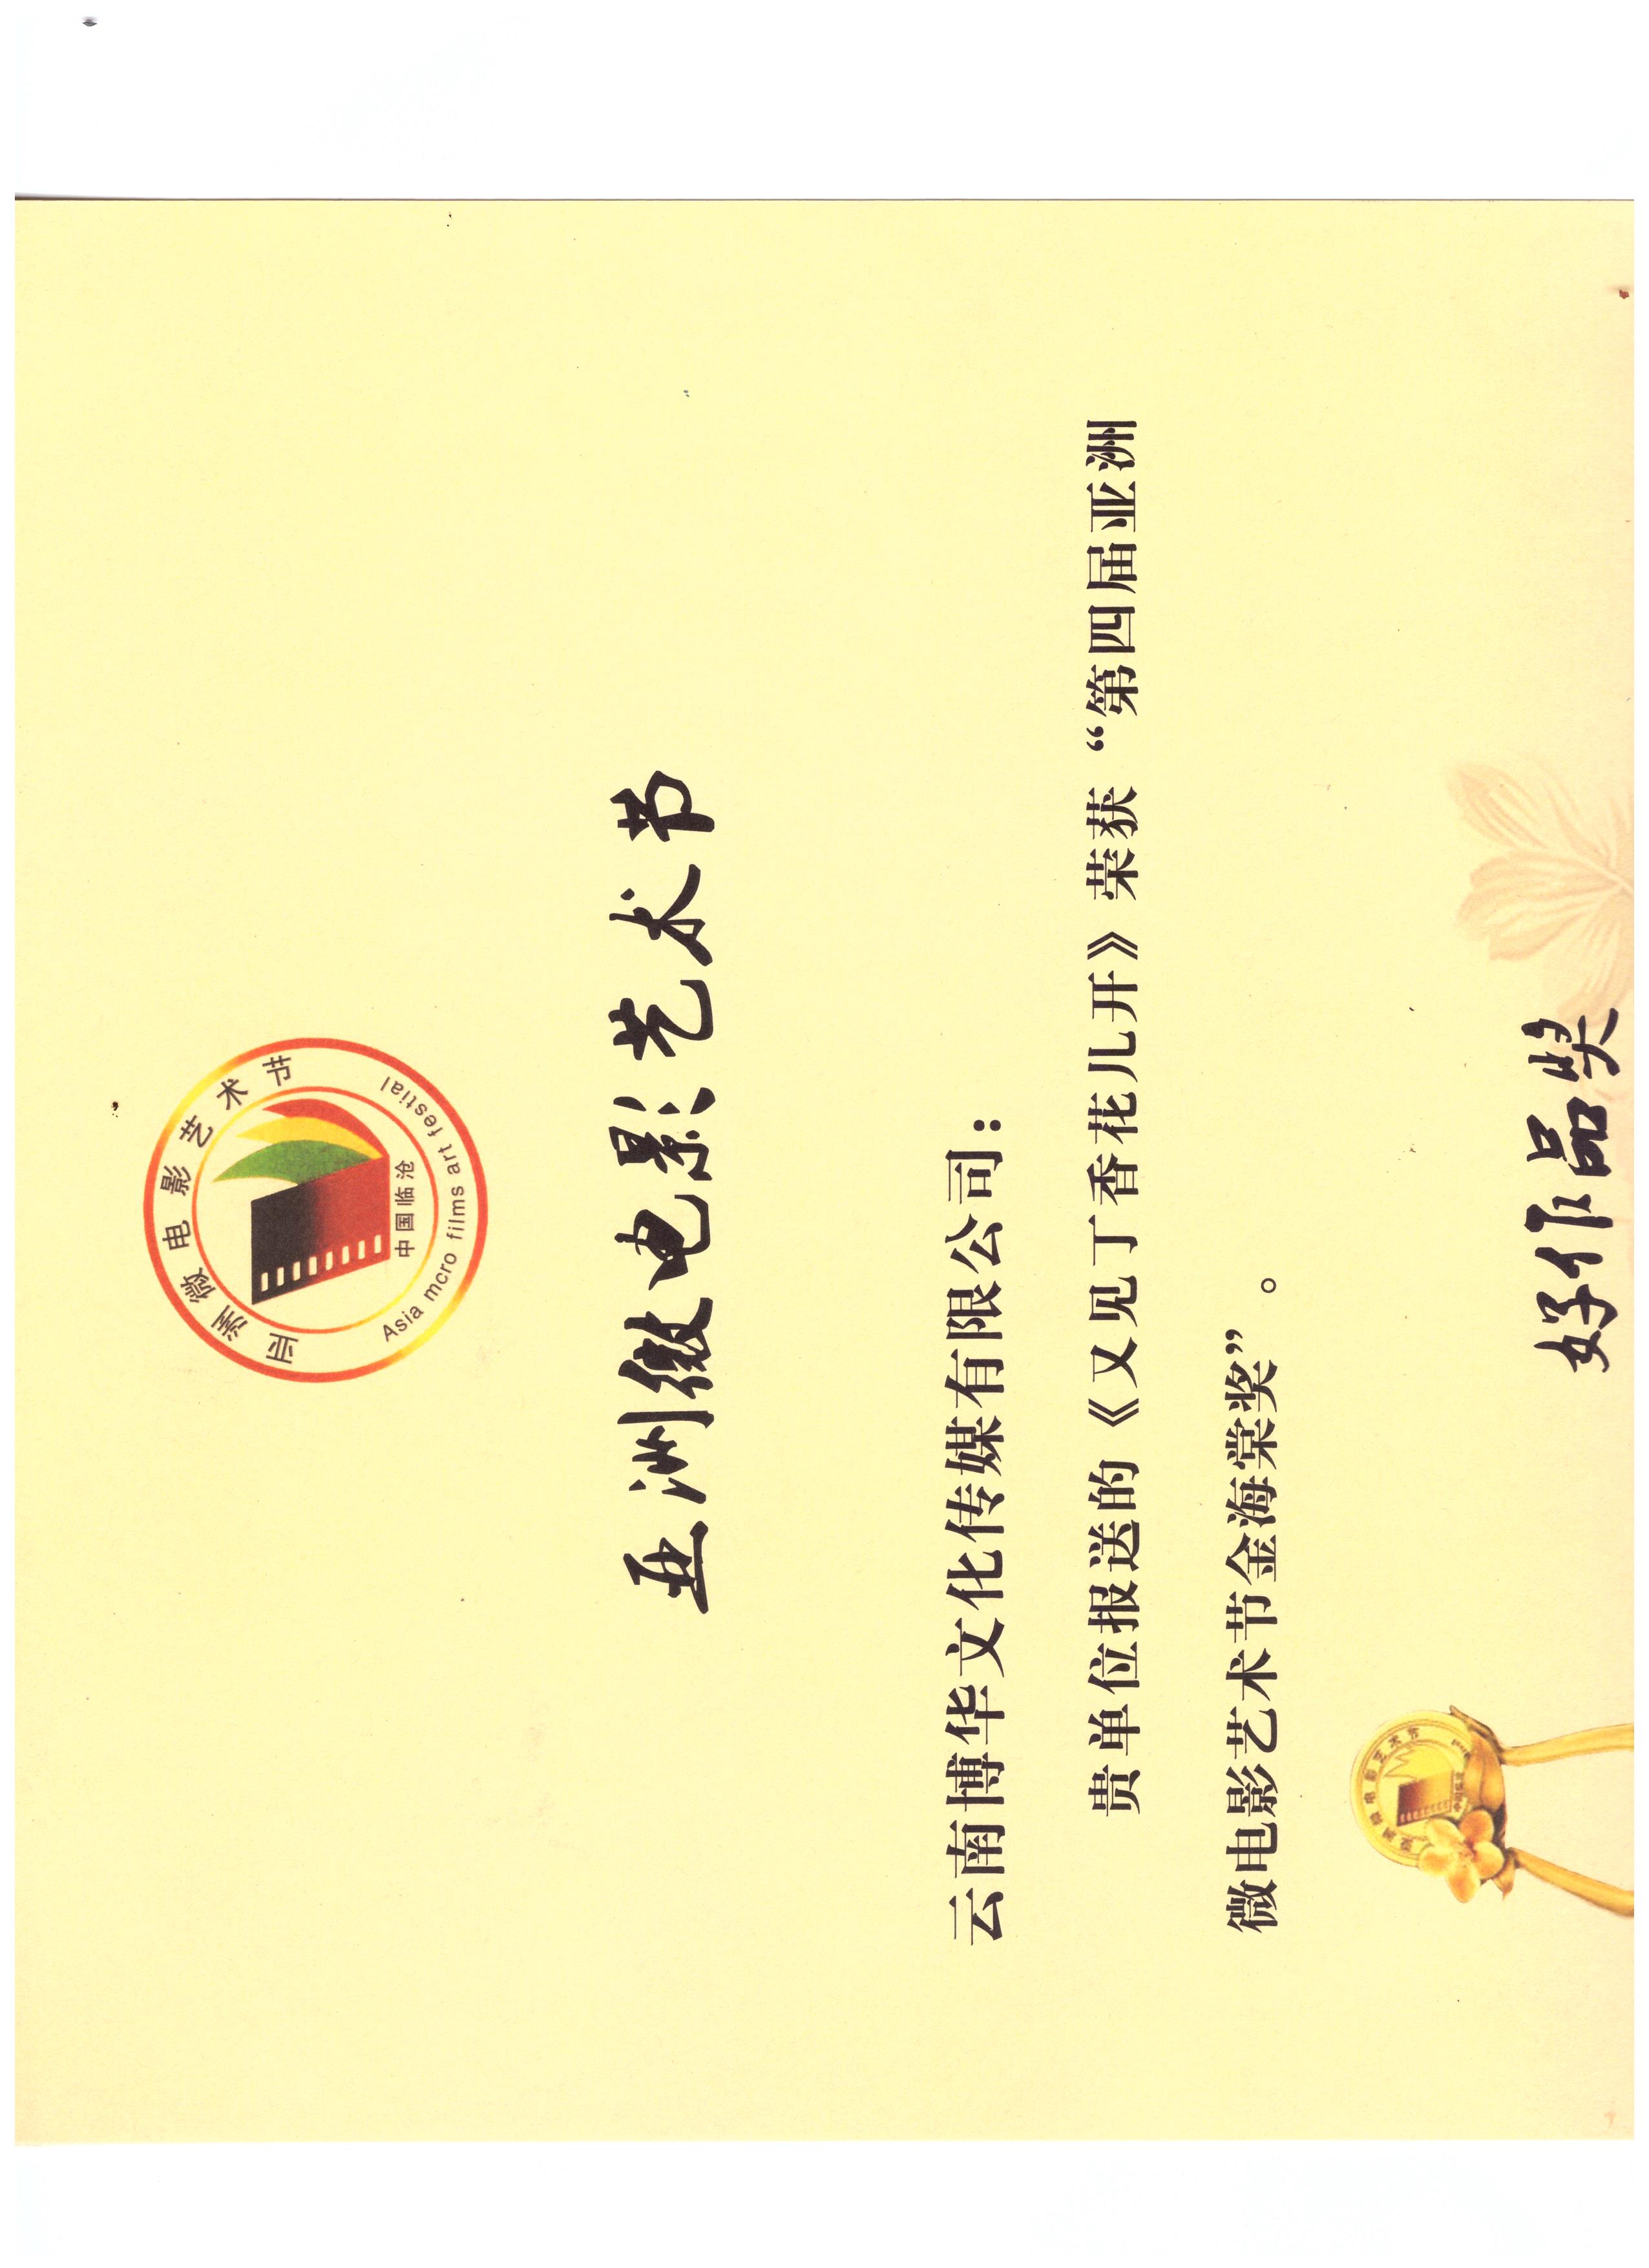 亚洲微电影艺术节
中国临沧
Asia mcro films art festial
亚洲微电影艺术节
云南博华文化传媒有限公司：
贵单位报送的《又见丁香花儿开》荣获“第四届亚洲
微电影艺术节金海棠奖”。
好作品奖
亚洲微电影艺术节
中国临沧